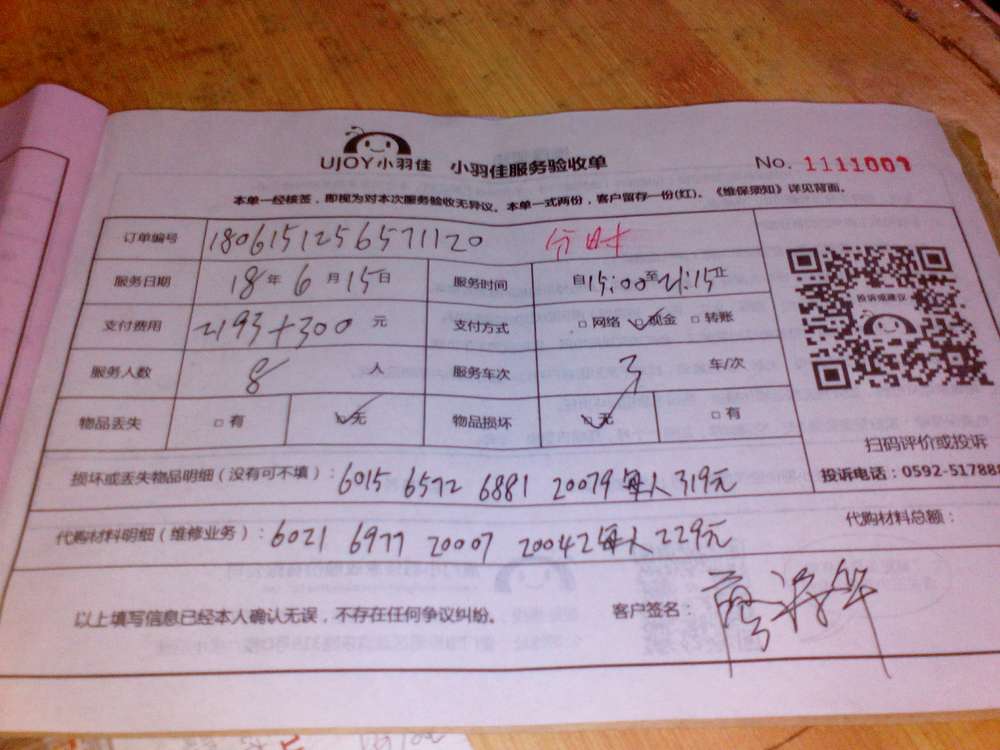 UJOY小羽佳 小羽佳服务验收单 No. 1111001
本单一经核签，即视为对本次服务验收无异议。本单一式两份，客户留存一份(红)。《维保须知》详见背面。
订单编号 1806151256571120 分时
服务日期 18年6月15日 服务时间 自15:00至21:15止
支付费用 2193+300元 支付方式 □网络 ☑现金 □转账
服务人数 8人 服务车次 3车/次
物品丢失 □有 ☑无 物品损坏 ☑无 □有
投诉或建议
扫码评价或投诉
投诉电话：0592-517888
损坏或丢失物品明细（没有可不填）：6015 6572 6881 20079 每人319元
代购材料明细（维修业务）：6021 6977 20007 20042每人229元
代购材料总额：
以上填写信息已经本人确认无误，不存在任何争议纠纷。 客户签名：